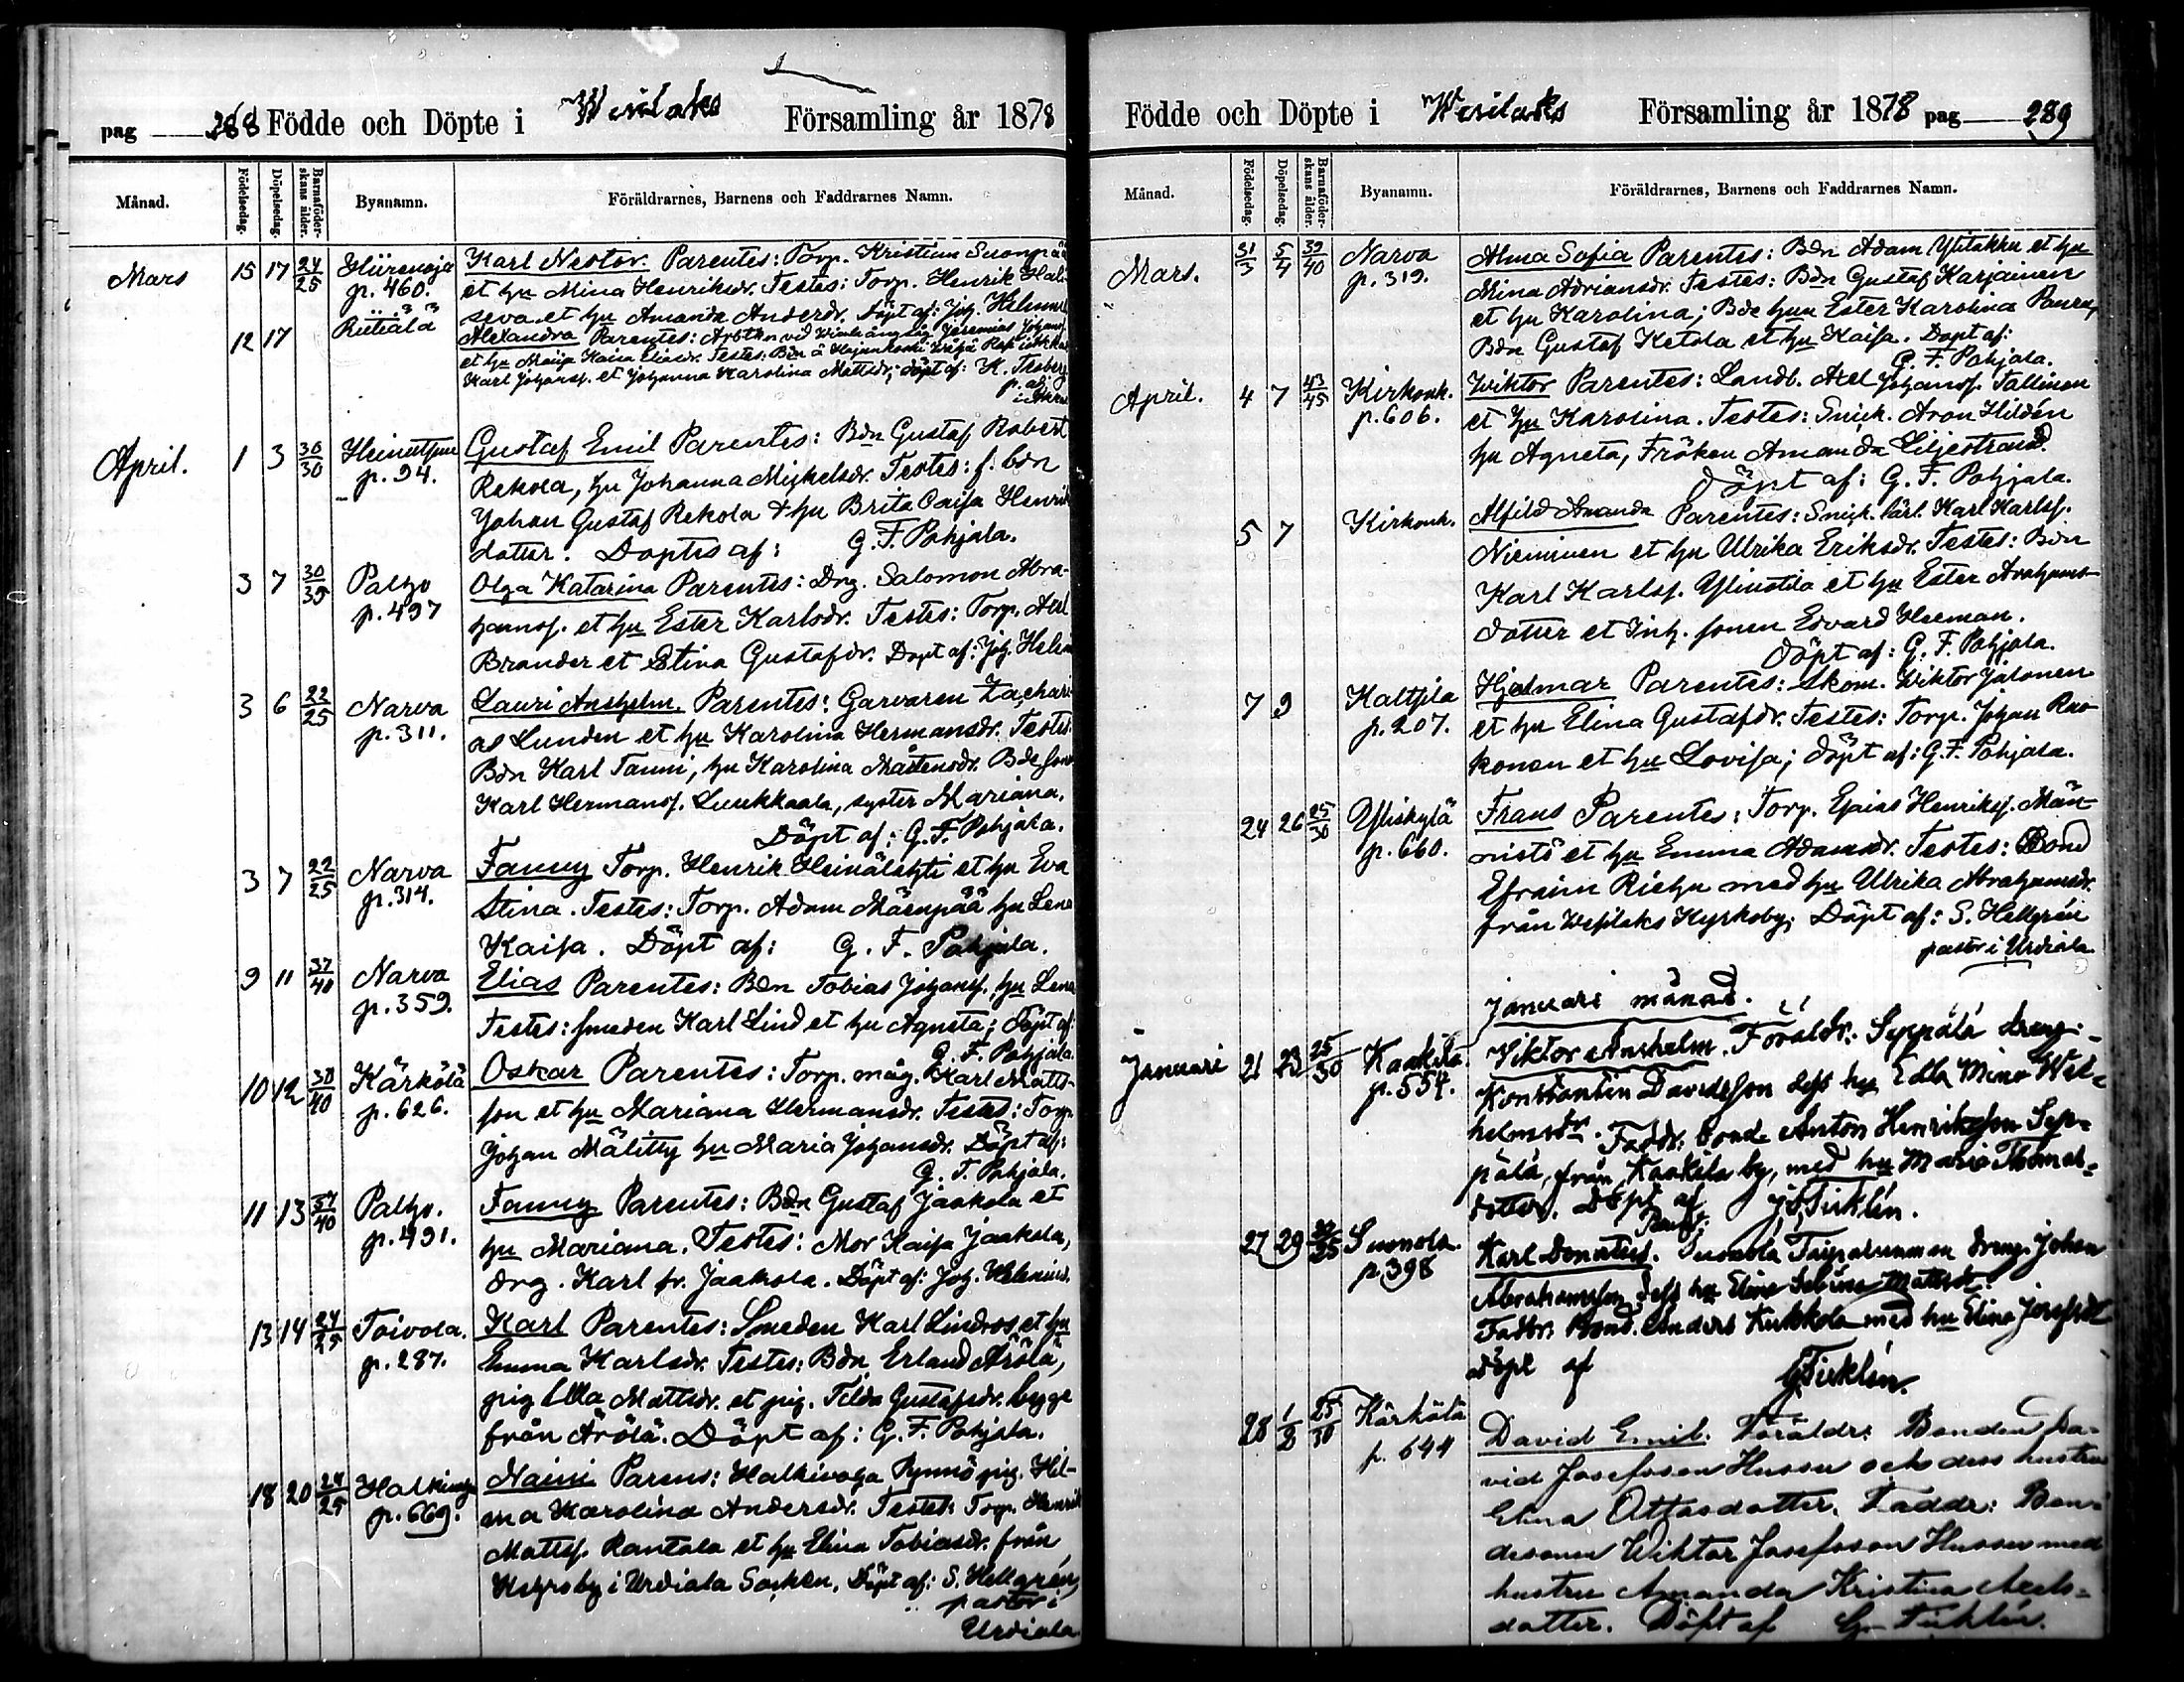 pag 288 Födde och Döpte i Wesilaks Församling år 1878
Månad. Födelsedag. Döpelsedag. Barnaföderskans ålder. Byanamn. Föräldrarnes, Barnens och Faddrarnes Namn.
Mars 15 17 24/25 Hiirenoja Karl Nestor. Parentes: Torp. Kristian Suonpää
p. 460. et hu Mina Henriksdr. Testes: Torp. Henrik
et hu Amanda Andersdr. Döpt af: Joh. Helenius
12 17 Riitiälä Alexandra Parentes: Jeremias Johans.
et hu Maija Kaisa Eliasdr. Testes: Bdn
Karl Johansf. et Johanna Karolina Mattsdr; döpt af: K.
April. 1 3 30/30 Gustaf Emil Parentes: Bdn Gustaf Robert
p. 94. Rekola, hu Johanna Mickelsdr. Testes: f. bdn
Johan Gustaf Rekola & hu Brita Caisa Henrik
dotter. Döptes af: G. F. Pohjala.
3 7 30/35 Palho Olga Katarina Parentes: Drg. Salomon Abra-
p. 497 hamsf. et hu Ester Karlsdr. Testes: Torp. Axel
Brander et Stina Gustafdr. Döpt af: Joh. Helen
3 6 22/25 Narva Lauri Anshelm. Parentes: Garvaren Zachari
p. 311. as Lunden et hu Karolina Hermansdr. Testes
Bdn Karl Tanni, hu Karolina Mårtensdr. Bde son
Karl Hermansf. Luukkaala, syster Mariana.
Döpt af: G. F. Pohjala.
3 7 22/25 Narva Fanny Torp. Henrik Heinälehti et hu Eva
p. 314. Stina. Testes: Torp. Adam Mäenpää hu Lena
Kaisa. Döpt af: G. F. Pohjala.
9 11 37/40 Narva Elias Parentes: Bdn Tobias Johansf. hu Lena
p. 359. Testes: smeden Karl Lind et hu Agneta; Döpt af:
G. F. Pohjala
10 12 38/40 Kärkölä Oskar Parentes: Torp. måg. Karl Matts-
p. 626. son et hu Mariana Hermansdr. Testes: Torp.
Johan Mälitty hu Maria Johansdr. Döpt af:
G. F. Pohjala.
11 13 37/40 Palho. Fanny Parentes: Bdn Gustaf Jaakola et
p. 491. hu Mariana. Testes: Mor Kaisa Jaakola,
drg. Karl fr. Jaakola. Döpt af: Joh. Helenius.
13 14 24/25 Toivola. Karl Parentes: Smeden Karl Lindros et hu
p. 287. Emma Karlsdr. Testes: Bdn Erland Ärölä,
pig Ulla Mattsdr. et pig. Tilda Gustafsdr. begge
från Ärölä. Döpt af: G. F. Pohjala.
18 20 24/25 Naimi Parens: Halkivaha pig. Hil-
p. 669. ma Karolina Andersdr. Testes: Torp. Henrik
Mattsf. Rantala et hu Elina Tobiasdr. från
i Urdiala Socken, Döpt af: S. Hellgrén,
pastor i
Urdiala
Födde och Döpte i Wesilaks Församling år 1878 pag 289
Månad. Födelsedag. Döpelsedag. Barnaföderskans ålder. Byanamn. Föräldrarnes, Barnens och Faddrarnes Namn.
Mars. 31/3 5/4 39/40 Narva Alma Sofia Parentes: Bdn Adam Ylitakku et hu
p. 319. Mina Adriansdr. Testes: Bdn Gustaf Karjainen
et hu Karolina; Bde Ester Karolina
Bdn Gustaf Ketola et hu Kaisa. Döpt af:
G. F. Pohjala.
April. 4 7 43/45 Kirkonk. Wiktor Parentes: Landb. Axel Johansf. Tallinen
p. 606. et hu Karolina. Testes: Snick. Aron Hildén
hu Agneta, Fröken Amanda Liljestrand.
Döpt af: G. F. Pohjala.
5 7 Kirkonk. Alfild Amanda Parentes: Snick. lärl. Karl Karlsf.
Nieminen et hu Ulrika Eriksdr. Testes: Bdn
Karl Karlsf. et hu Ester Abrahams-
dotter et Inh. sonen Edvard Heeman.
Döpt af: G. F. Pohjala.
7 9 Kaltsila Hjalmar Parentes: Skom. Wiktor Jalonen
p. 207. et hu Elina Gustafdr. Testes: Torp. Johan Ruo-
konen et hu Lovisa; döpt af: G. F. Pohjala.
24 26 25/30 Yliskylä Frans Parentes: Torp. Esaias Henriksf. Män-
p. 660. nistö et hu Emma Adamsdr. Testes: Bond
Efraim med hu Ulrika Abrahamsdr.
från Wesilaks Kyrkoby; Döpt af: S. Hellgrén
pastor i Urdiala
januari månad.
Januari 21 23 25/30 Kaakila Viktor Anshelm. Föraldr: Seppälä dreng:
p. 554. Konstantin Davidsson dess hu Edla Mina Wil-
helmsdr. Faddr. bond. Anton Henriksson Sep-
pälä, från Kaakila by, med hu Maria Thomas-
dotter. Döpt af Ticklén.
27 29 Suonola Karl Donatus. Suonola dreng. Johan
p. 398 Abrahamsson dess hu Elina Sabina Mattsdr.
Faddr. Bond. Anders Kukkola med hu Elina Josefsdr
döpt af G Ticklén.
28 1/2 25/30 Kärkölä David Emil. Föräldr: Bonden Da-
p. 644 vid Josefsson Hussu och dess hustru
Elina Ottosdotter. Faddr: Bon-
desonen Wiktor Josefsson Hussu med
hustru Amanda Kristina Axels-
dotter. Döpt af G. Ticklén.